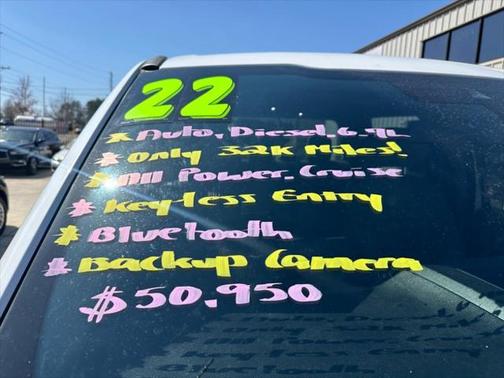 22
* Auto, Diesel, 6.7L
* Only 32K Miles!
* All Power, Cruise
* Keyless Entry
* Bluetooth
* Backup Camera
$50,950